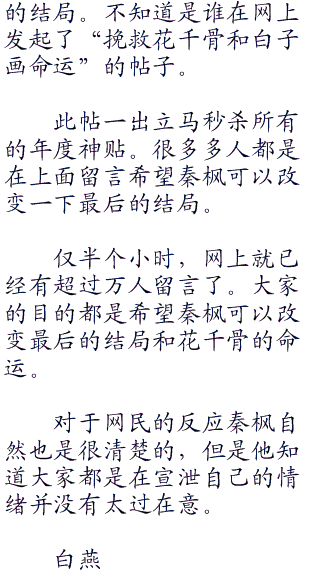 的结局。不知道是谁在网上
发起了“挽救花千骨和白子
画命运”的帖子。
此帖一出立马秒杀所有
的年度神贴。很多多人都是
在上面留言希望秦枫可以改
变一下最后的结局。
仅半个小时，网上就已
经有超过万人留言了。大家
的目的都是希望秦枫可以改
变最后的结局和花千骨的命
运。
对于网民的反应秦枫自
然也是很清楚的，但是他知
道大家都是在宣泄自己的情
绪并没有太过在意。
白燕